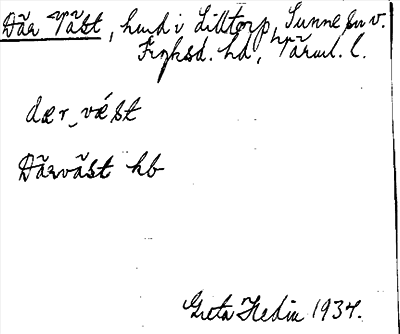 Där Väst, hmd i Lilltorp, Sunne sn v.
Fryksd. hd, Värml. l.
dær‿vǽst
Därväst hb
Greta Hedin 1934.